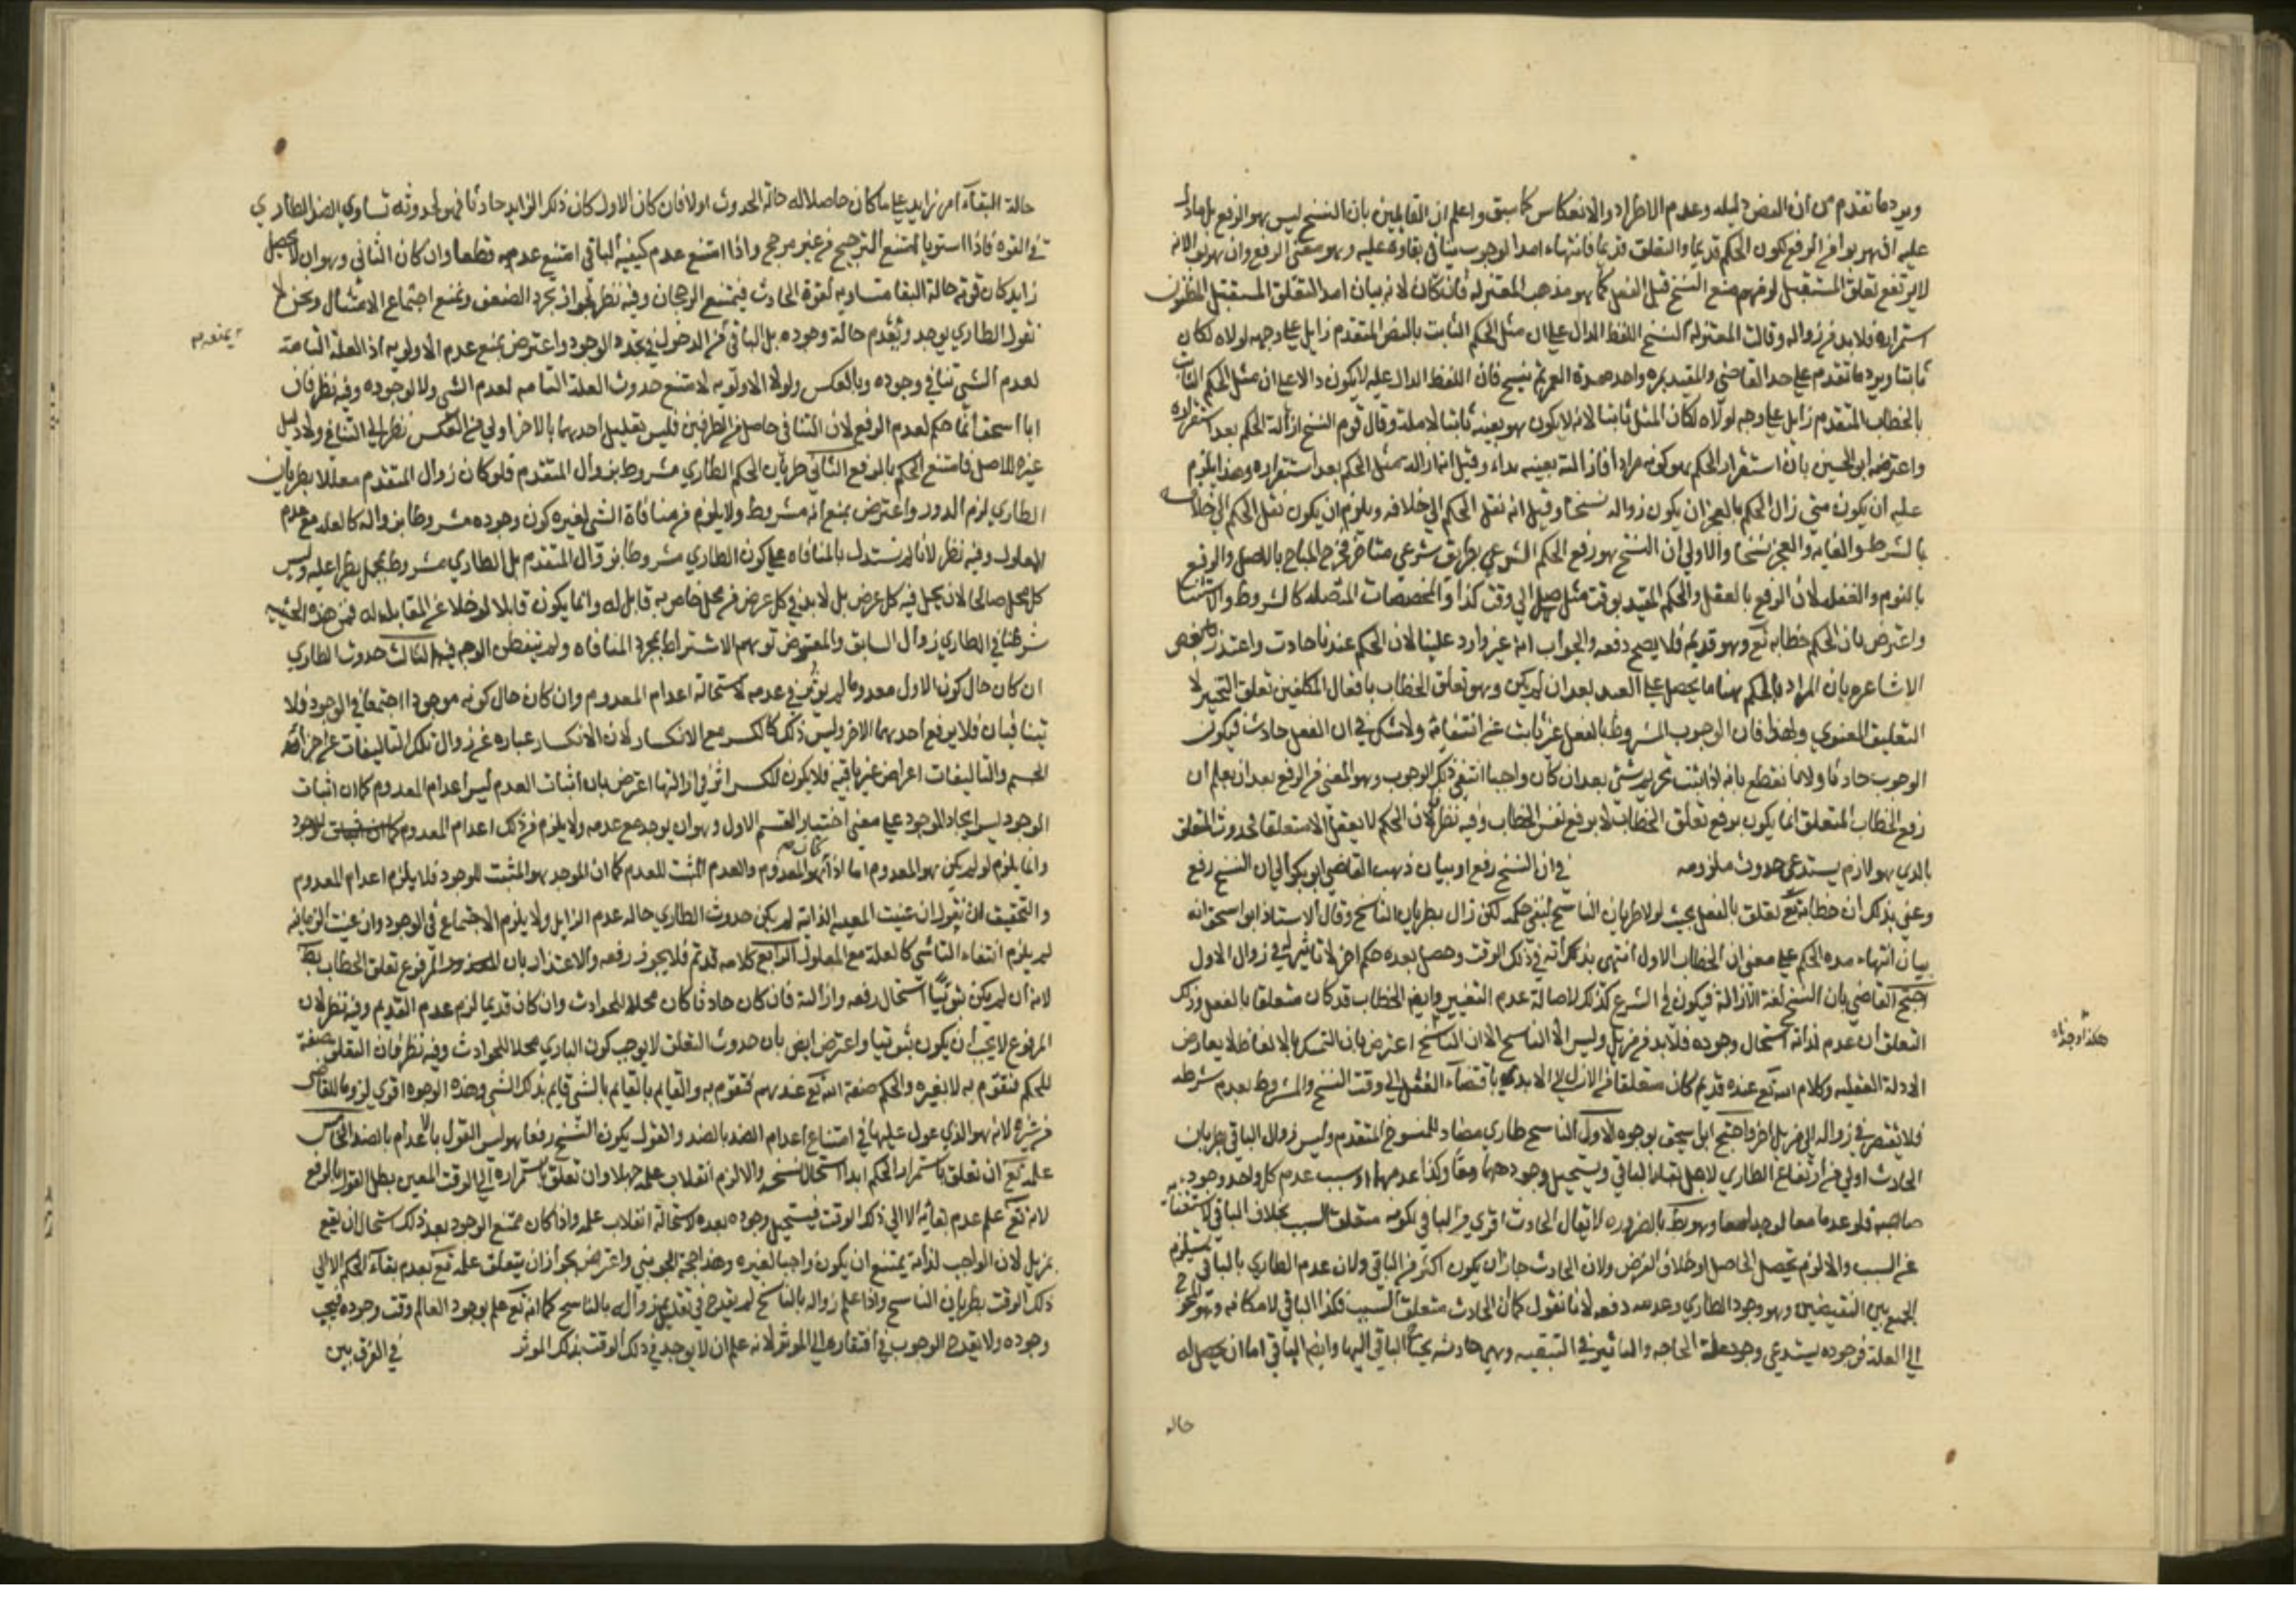 ويرد ما تقدم من ان النص دليله وعدم الاطراد والانعكاس كما سبق واعلم ان القايلين بان النسخ ليس هو الرفع بل ما دل
عليه ان هربوا من الرفع لكون الحكم قديما والتعلق قديما فانتهاء امد الوجوب ينافي بقاوه عليه وهو معنى الرفع وان هربوا لانه
لا يرتفع تعلق المستقبل لزمهم منع النسخ قبل الفعل كما هو مذهب المعتزله فان كان لانه بيان امد التعلق المستقبل المظنون
استمراره فلا بد من زواله وقالت المعتزله النسخ اللفظ الدال على ان مثل الحكم الثابت بالنص المتقدم زايل على وجه لولاه لكان
ثابتا ويرد ما تقدم على حد القاضي والمقيد بمره واحدة فان اللفظ الدال عليه لا يكون دالا على ان مثل الحكم الثابت
بالخطاب المتقدم زايل على وجه لولاه لكان المثل ثابتا لانه لا يكون هو بعينه ثابتا لا مثله وقال قوم النسخ ازالة الحكم بعد استقراره
واعترضه ابو الحسين بان استقرار الحكم هو كونه مرادا فازالته بعينه بداء وقيل انه ازاله مثل الحكم بعد استقراره وهذا يلزم
عليه ان يكون متى زال الحكم بالعجز ان يكون زواله نسخا وقيل انه نقل الحكم الى خلافه ويلزم ان يكون نقل الحكم الى خلافه
بالشرط والغايه والعجز نسخا والاولى ان النسخ هو رفع الحكم الشرعي بطريق شرعي متاخر فخرج المباح بالاصل والرفع
بالنوم والغفله لان الرفع بالعقل والحكم المقيد بوقت مثل صل الى وقت كذا والمخصصات المتصله كالشروط والاستثنا
واعترض بان الحكم خطابه تع وهو قديم فلا يصح دفعه والجواب انه غير وارد علينا لان الحكم عندنا حادث واعتذر بعض
الاشاعره بان المراد بالحكم هنا ما يحصل على العبد بعد ان لم يكن وهو تعلق الخطاب بافعال المكلفين تعلق التخيير لا
التعليق المعنوي ولهذا فان الوجوب المشروط بالفعل غير ثابت عند انتفائه ولا شك في ان الفعل حادث فيكون
الوجوب حادثا ولانا نقطع بانه اذا ثبت تحريم شئ بعد ان كان واجبا انتفى ذلك الوجوب وهو المعنى من الرفع بعد ان يعلم ان
رفع الخطاب المتعلق انما يكون برفع تعلق الخطاب لا برفع نفس الخطاب وفيه نظر لان الحكم لا يعقل الا متعلقا فحدوث التعلق
بالذي هو لازم يستدعي حدوث ملزومه في ان النسخ رفع او بيان ذهب القاضي ابو بكر الى ان النسخ رفع
وعنى بذلك ان خطابه تع تعلق بالفعل بحيث لولا طريان الناسخ لبقي حكمه لكن زال بطريان الناسخ وقال الاستاذ ابو اسحق انه
بيان انتهاء مده الحكم على معنى ان الخطاب الاول انتهى بذاته في ذلك الوقت وحصل بعده حكم اخر لا تاثير له في زوال الاول
احتج القاضي بان النسخ لغة الازالة فيكون في الشرع كذلك لاصالة عدم التغيير وايضا الخطاب قد كان متعلقا بالفعل وذلك
هكذا وجدناه
التعلق ان عدم لذاته استحال وجوده فلا بد من مزيل وليس الا الناسخ اعترض بان التمسك بالالفاظ لا يعارض
الادلة العقليه وكلام الله تع عنده قديم كان متعلقا من الازل الى الابد باقتضاء الفعل الى وقت النسخ والمشروط يعدم بعدم شرطه
فلا يفتقر في زواله الى مزيل اخر واحتج ابو اسحق بوجوه الاول الناسخ طاري مضاد للمنسوخ المتقدم وليس زوال الباقي بطريان
الحادث اولى من ارتفاع الطاري لاجل بقاء الباقي ويستحيل وجودهما معا وكذا عدمهما اذ سبب عدم كل واحد وجود
صاحبه فلو عدما معا لوجدا معا وهو بط بالضروره لا يقال الحادث اقوى من الباقي لكونه متعلق السبب بخلاف الباقي لاستغنائه
عن السبب والا لزم تحصيل الحاصل او خلاف الفرض ولان الحادث جاز ان يكون اكثر من الباقي ولان عدم الطاري بالباقي يستلزم
الجمع بين النقيضين وهو وجود الطاري وعدمه دفعه لانا نقول كما ان الحادث متعلق السبب فكذا الباقي لامكانه وهو المحوج
الى العلة فوجوده يستدعي وجود علة الحاجه والتاثير في التبقيه وهي حادثه يحتاج الباقي اليها وايضا الباقي اما ان يحصل له
حاله
حالة البقاء امر زايد على ما كان حاصلا له حالة الحدوث اولا فان كان الاول كان ذلك الزايد حادثا فهو لحدوثه تساوي الضد الطاري
في القوه فاذا استويا امتنع الترجيح من غير مرجح واذا امتنع عدم كيفية الباقي امتنع عدمه قطعا وان كان الثاني وهو ان لا يحصل
زايد كان قوته حالة البقا مساويه لقوة الحادث فيمتنع الرجحان وفيه نظر لجواز تجرد الضعف ونمنع اجتماع الامثال ونحن لا
نقول الطاري يوجد ويقدم حالة وجوده بل الباقي من الدخول في تجدد الوجود واعترض بمنع عدم الاولويه اذ العلة التامة
يمنعه
لعدم الشي تنافي وجوده وبالعكس ولولا الاولويه لامتنع حدوث العلة التامه لعدم الشي ولا لوجوده وفيه نظر فان
ابا اسحق انما حكم لعدم الرفع لان التنافي حاصل من الطرفين فليس تعليل احدهما بالاخر اولى من العكس نظرا الى التنافي ولا دليل
غيره للاصل فامتنع الحكم بالرفع الثاني طريان الحكم الطاري مشروط بزوال المتقدم فلو كان زوال المتقدم معللا بطريان
الطاري لزم الدور واعترض بمنع انه مشروط ولا يلزم من منافاة الشي لغيره كون وجوده مشروطا بزواله كالعله مع عدم
المعلول وفيه نظر لانا لم نستدل بالمنافاه على كون الطاري مشروطا بزوال المتقدم بل الطاري مشروط بمحل يطرا عليه وليس
كل محل صالحا لان يحل فيه كل عرض بل لا بد في كل عرض من محل خاص به قابل له وانما يكون قابلا لو خلا عن المقابل له فمن هذه الحيثيه
شرطنا في الطاري زوال السابق والمعترض توهم الاشتراط بمجرد المنافاه ولم يتفطن للوجه فيه الثالث حدوث الطاري
ان كان حال كون الاول معدوما لم يوثر في عدمه لاستحالة اعدام المعدوم وان كان حال كونه موجودا اجتمعا في الوجود فلا
يتنافيان فلا يرفع احدهما الاخر وليس ذلك كالكسر مع الانكسار لان الانكسار عباره عن زوال تلك التاليفات عن اجزاء
الجسم والتاليفات اعراض غير باقيه فلا يكون للكسر اثر في ازالتها اعترض بان اثبات العدم ليس اعدام المعدوم كما ان اثبات
الوجود ليس ايجاد الموجود على معنى اختيار القسم الاول وهو ان يوجد مع عدمه ولا يلزم من ذلك اعدام المعدوم
وانما يلزم لو لم يكن هو المعدوم اما اذا كان هو المعدوم والعدم المثبت للعدم كما ان الموجد هو المثبت للوجود فلا يلزم اعدام المعدوم
والتحقيق ان نقول ان عنيت المعيه الذاتيه لم يكن حدوث الطاري حاله عدم الزايل ولا يلزم الاجتماع في الوجود وان عنيت الزمانيه
لم يلزم انتفاء التاثير كالعلة مع المعلول الرابع كلامه قديم فلا يجوز رفعه والاعتذار بان المرفوع تعلق الخطاب بط
لانه ان لم يكن ثبوتيا استحال رفعه وازالته فان كان حادثا كان محلا للحوادث وان كان قديما لزم عدم القديم وفيه نظر لان
المرفوع لا يجب ان يكون ثبوتيا واعترض ايضا بان حدوث التعلق لا يوجب كون الباري محلا للحوادث وفيه نظر فان التعلق صفة
للحكم فتقوم به لا بغيره والحكم صفة الله تع عندهم فتقوم به والقايم بالقايم بالشي قايم بذلك الشي وهذه الوجوه اقوى لزوما للقاضي
من غيره لانه هو الذي عول عليها في امتناع اعدام الضد بالضد والقول بكون النسخ رفعا هو ليس القول بالاعدام بالضد الخامس
علمه تع ان تعلق باستمرار الحكم ابدا استحال نسخه والا لزم انقلاب علمه جهلا وان تعلق باستمراره الى الوقت المعين بطل القول بالرفع
لانه تع علم عدم بقائه الا الى ذلك الوقت فيستحيل وجوده بعده لاستحالة انقلاب علمه واذا كان ممتنع الوجود بعد ذلك استحال ان يقع
بمزيل لان الواجب لذاته يمتنع ان يكون واجبا لغيره وهذا حجة الجويني واعترض بجواز ان يتعلق علمه تع بعدم بقاء الحكم الا الى
ذلك الوقت بطريان الناسخ واذا علم زواله بالناسخ لم يقدح في تعليل زواله بالناسخ كما انه تع علم بوجود العالم وقت وجوده فيجب
وجوده ولا يقدح الوجوب في افتقاره الى الموثر لانه علم ان لا يوجد في ذلك الوقت بذلك الموثر في الفرق بين